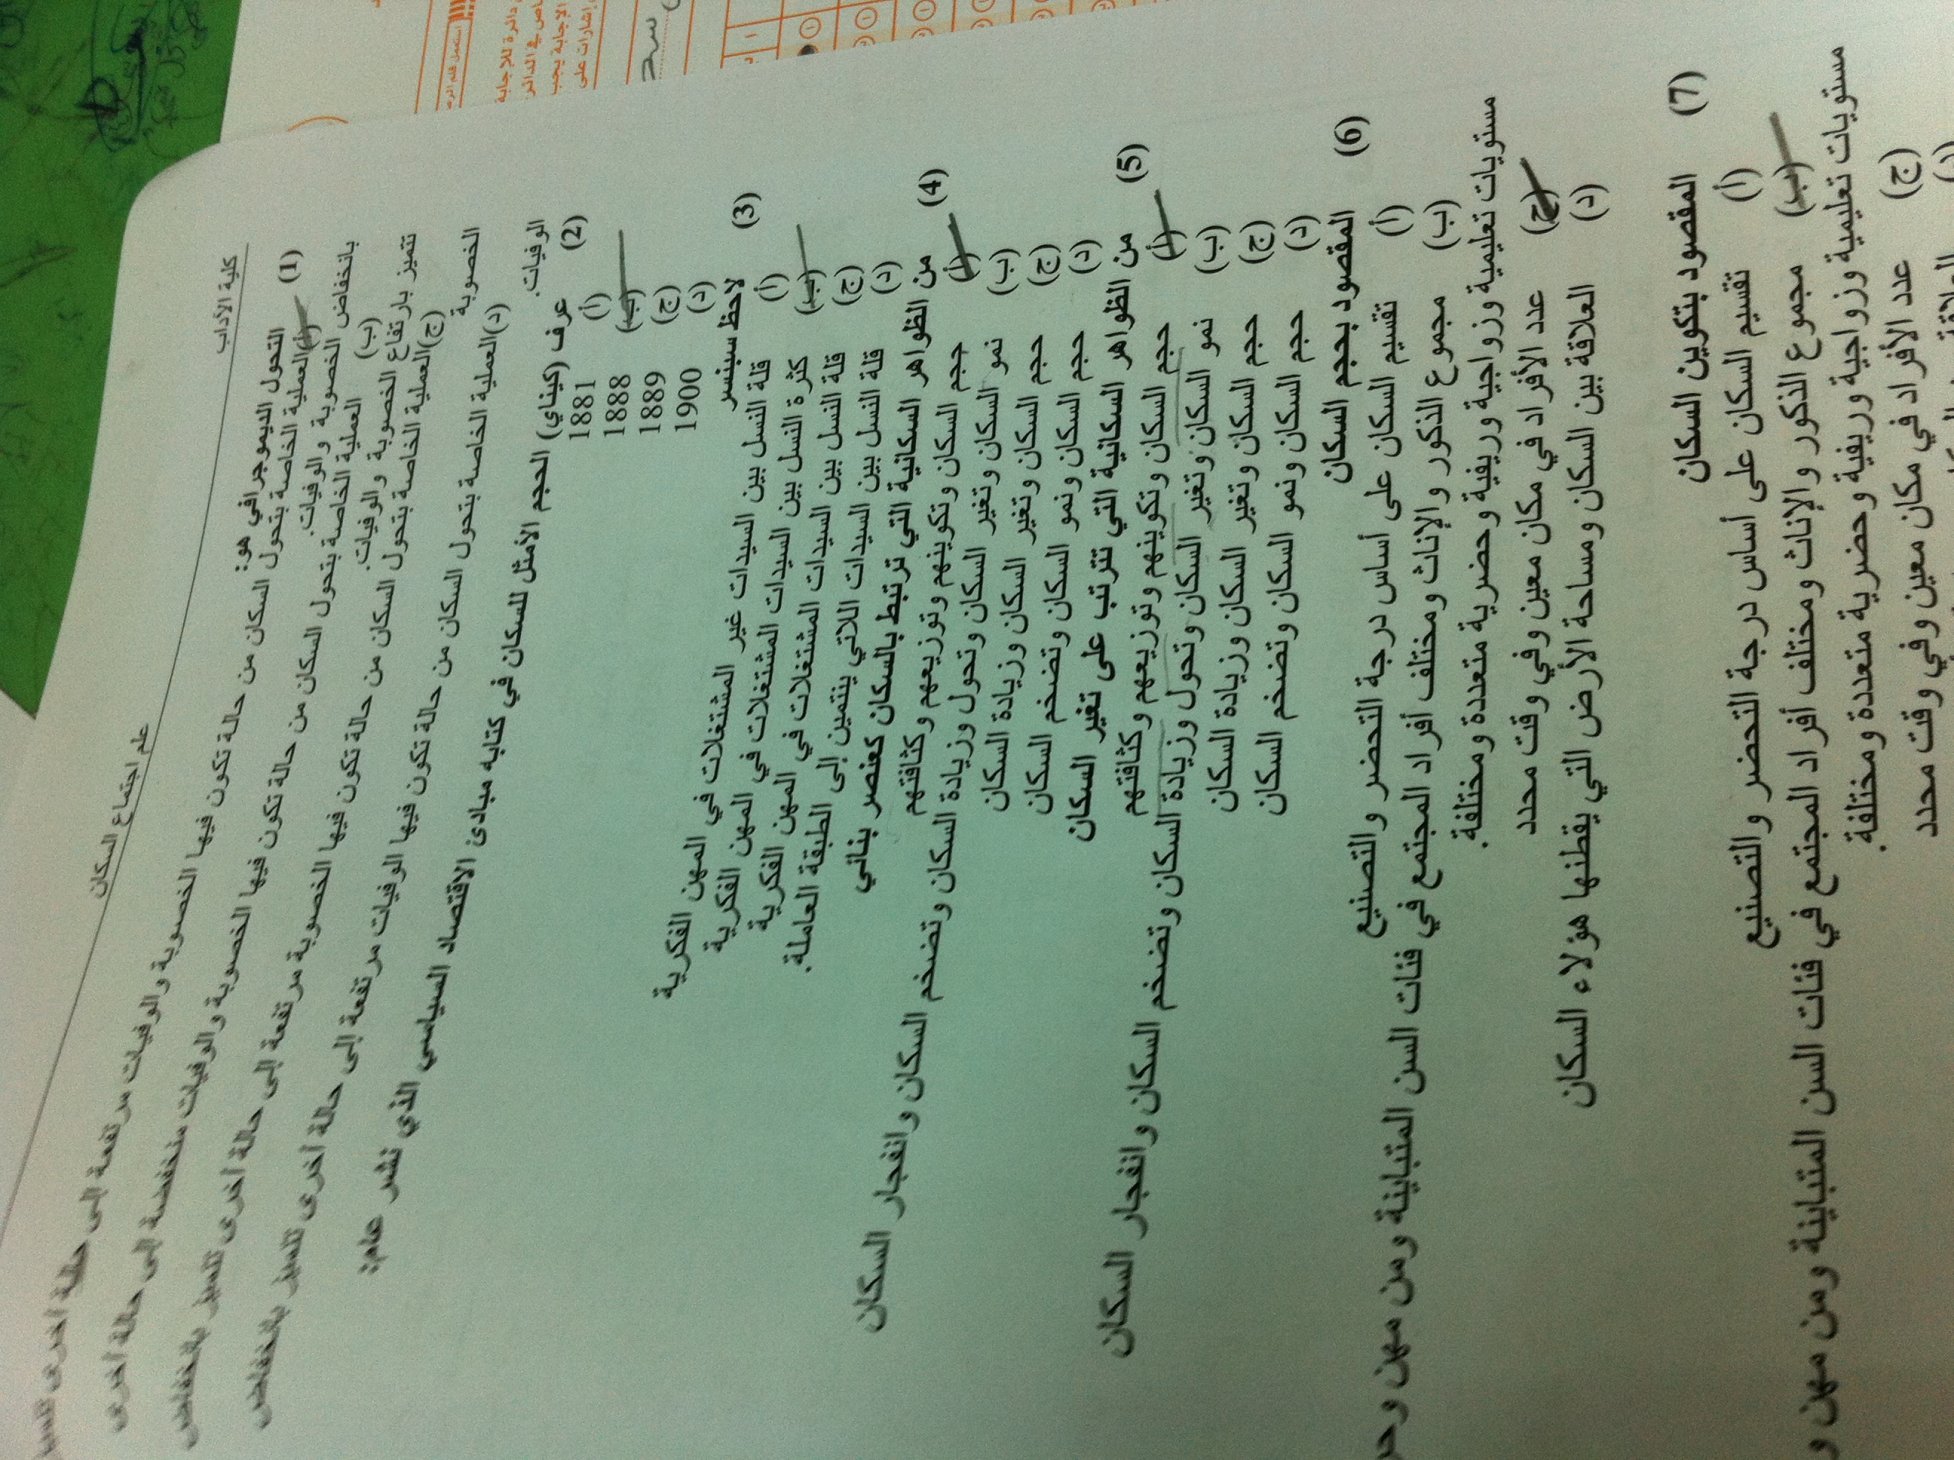 كلية الآداب
علم اجتماع السكان
(1) التحول الديموجرافي هو:
(أ) العملية الخاصة بتحول السكان من حالة تكون فيها الخصوبة والوفيات مرتفعة إلى حالة أخرى تتميز
بانخفاض الخصوبة والوفيات.
(ب) العملية الخاصة بتحول السكان من حالة تكون فيها الخصوبة والوفيات منخفضة إلى حالة أخرى
تتميز بارتفاع الخصوبة والوفيات.
(ج) العملية الخاصة بتحول السكان من حالة تكون فيها الخصوبة مرتفعة إلى حالة أخرى تتميز بانخفاض
الخصوبة
(د) العملية الخاصة بتحول السكان من حالة تكون فيها الوفيات مرتفعة إلى حالة أخرى تتميز بانخفاض
الوفيات.
(2) عرف (كيناي) الحجم الأمثل للسكان في كتابه مبادئ الاقتصاد السياسي الذي نشر عام:
(أ) 1881
(ب) 1888
(ج) 1889
(د) 1900
(3) لاحظ سبنسر
(أ) قلة النسل بين السيدات غير المشتغلات في المهن الفكرية
(ب) كثرة النسل بين السيدات المشتغلات في المهن الفكرية
(ج) قلة النسل بين السيدات المشتغلات في المهن الفكرية
(د) قلة النسل بين السيدات اللاتي ينتمين إلى الطبقة العاملة.
(4) من الظواهر السكانية التي ترتبط بالسكان كعنصر بنائي
(أ) حجم السكان وتكوينهم وتوزيعهم وكثافتهم
(ب) نمو السكان وتغير السكان وتحول وزيادة السكان وتضخم السكان وانفجار السكان
(ج) حجم السكان وتغير السكان وزيادة السكان
(د) حجم السكان ونمو السكان وتضخم السكان
(5) من الظواهر السكانية التي تترتب على تغير السكان
(أ) حجم السكان وتكوينهم وتوزيعهم وكثافتهم
(ب) نمو السكان وتغير السكان وتحول وزيادة السكان وتضخم السكان وانفجار السكان
(ج) حجم السكان وتغير السكان وزيادة السكان
(د) حجم السكان ونمو السكان وتضخم السكان
(6) المقصود بحجم السكان
(أ) تقسيم السكان على أساس درجة التحضر والتصنيع
(ب) مجموع الذكور والإناث ومختلف أفراد المجتمع في فئات السن المتباينة ومن مهن وحر
مستويات تعليمية وزواجية وريفية وحضرية متعددة ومختلفة.
(ج) عدد الأفراد في مكان معين وفي وقت محدد
(د) العلاقة بين السكان ومساحة الأرض التي يقطنها هؤلاء السكان
(7) المقصود بتكوين السكان
(أ) تقسيم السكان على أساس درجة التحضر والتصنيع
(ب) مجموع الذكور والإناث ومختلف أفراد المجتمع في فئات السن المتباينة ومن مهن و
مستويات تعليمية وزواجية وريفية وحضرية متعددة ومختلفة.
(ج) عدد الأفراد في مكان معين وفي وقت محدد
(د)